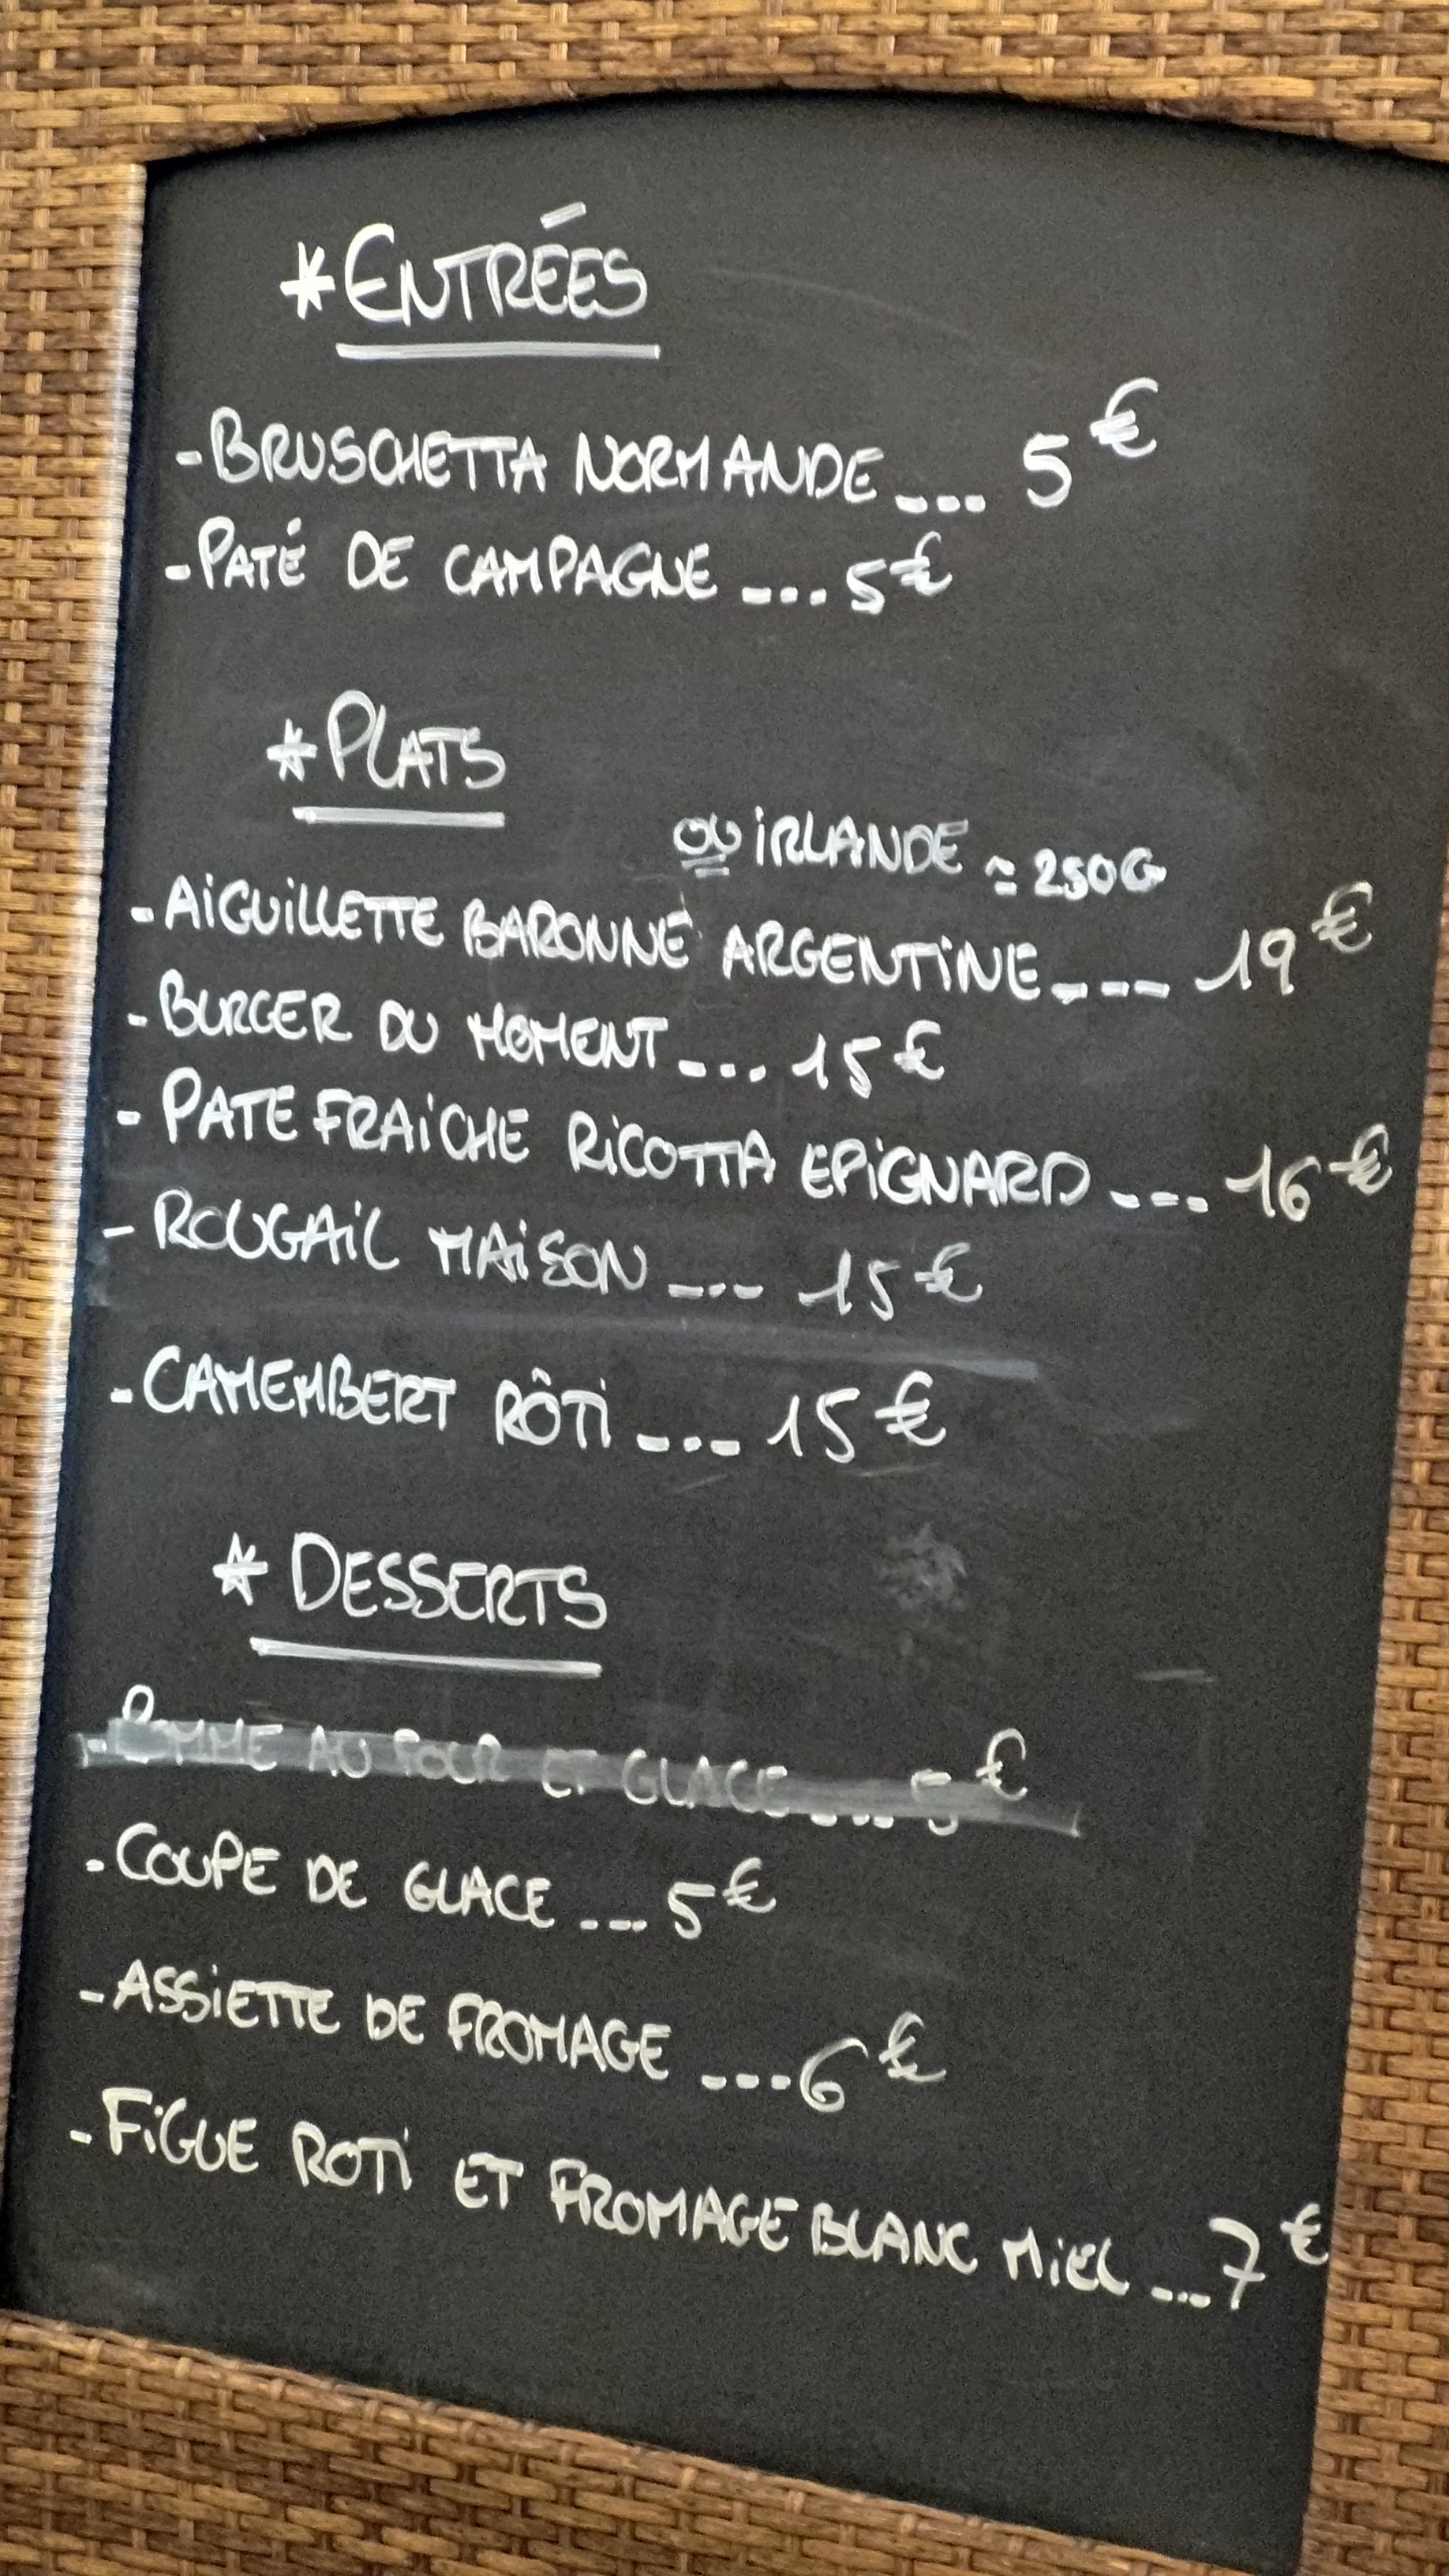 *ENTRÉES
-BRUSCHETTA NORMANDE ... 5€
-PATÉ DE CAMPAGNE ... 5€
*PLATS
OU IRLANDE ≈ 250G
-AIGUILLETTE BARONNE ARGENTINE ... 19€
-BURGER DU MOMENT ... 15€
-PATE FRAICHE RICOTTA EPIGNARD ... 16€
-ROUGAIL MAISON ... 15€
-CAMEMBERT RÔTI ... 15€
*DESSERTS
-POMME AU FOUR ET GLACE ... 5€
-COUPE DE GLACE ... 5€
-ASSIETTE DE FROMAGE ... 6€
-FIGUE ROTI ET FROMAGE BLANC MIEL ... 7€